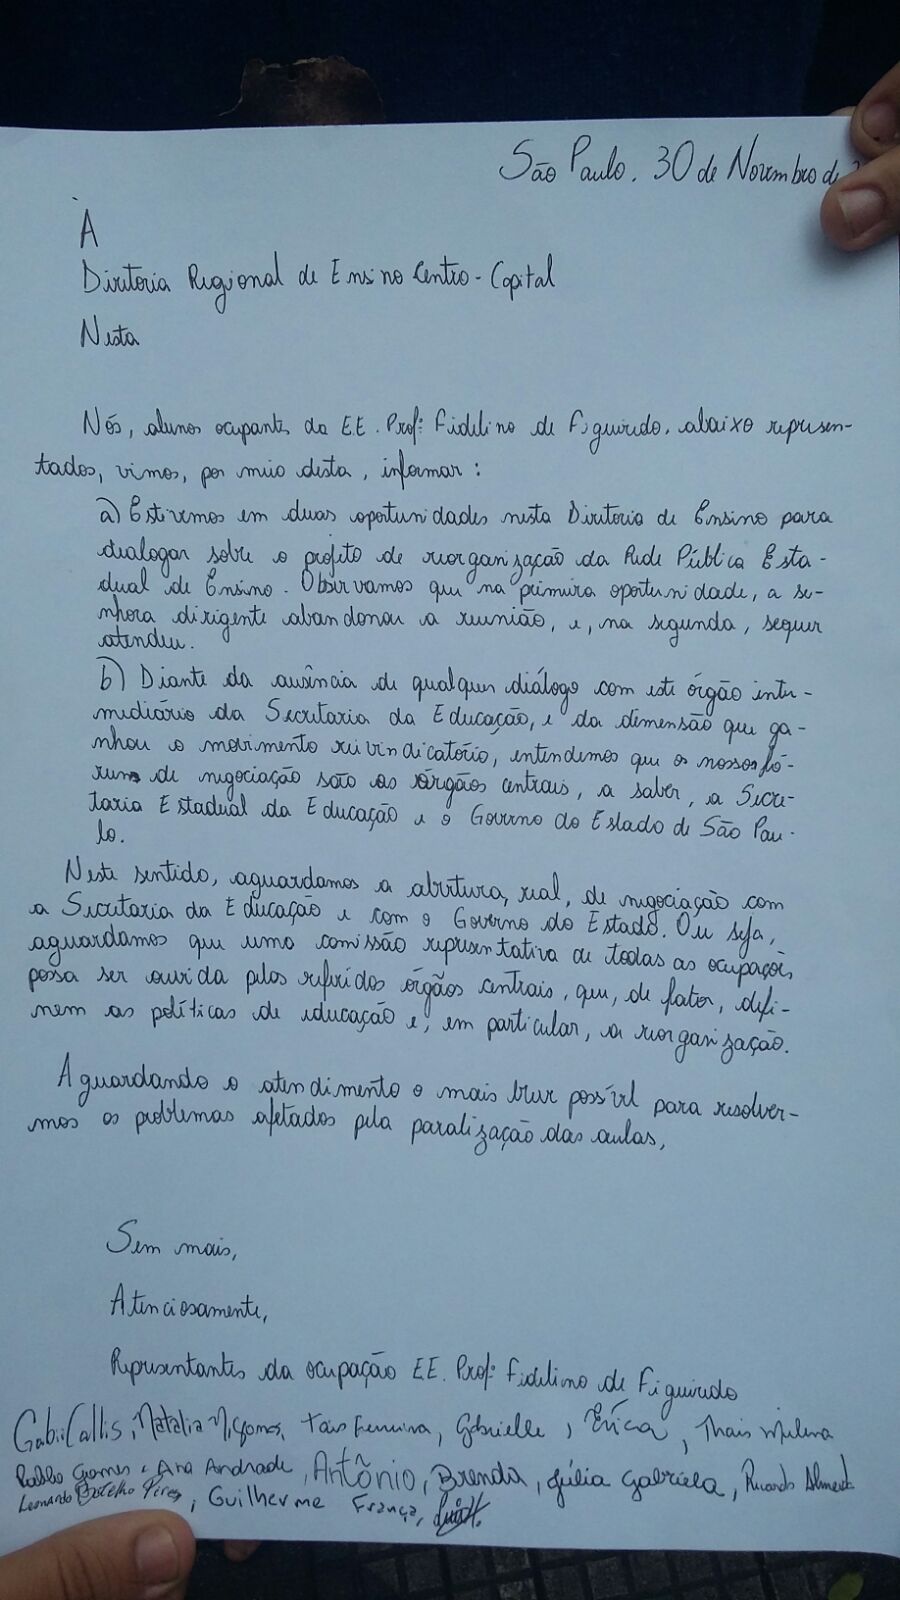 São Paulo, 30 de Novembro de
À
Diretoria Regional de Ensino Centro-Capital
Nesta
Nós, alunos ocupantes da EE. Profº Fidelino de Figueiredo, abaixo represen-
tados, vimos, por meio desta, informar:
a) Estivemos em duas oportunidades nesta Diretoria de Ensino para
dialogar sobre o projeto de reorganização da Rede Pública Esta-
dual de Ensino. Observamos que na primeira oportunidade, a se-
nhora dirigente abandonou a reunião, e, na segunda, sequer
atendeu.
b) Diante da ausência de qualquer diálogo com este órgão inter-
mediário da Secretaria da Educação, e da dimensão que ga-
nhou o movimento reivindicatório, entendemos que os nossos fó-
runs de negociação são os órgãos centrais, a saber, a Secre-
taria Estadual da Educação e o Governo do Estado de São Pau-
lo.
Neste sentido, aguardamos a abertura, real, de negociação com
a Secretaria da Educação e com o Governo do Estado. Ou seja,
aguardamos que uma comissão representativa de todas as ocupações,
possa ser ouvida pelos referidos órgãos centrais, que, de fator, defi-
nem as políticas de educação e, em particular, a reorganização.
Aguardando o atendimento o mais breve possível para resolver-
mos os problemas afetados pela paralização das aulas,
Sem mais,
Atenciosamente,
Representantes da ocupação EE. Profº Fidelino de Figueiredo
Gabii Callis, Natalia M. Gomes, Tais Ferreira, Gabrielle, Érica, Thais Milena
Pablo Gomes, Ana Andrade, Antônio, Brenda, Júlia Gabriela, Ricardo Almeida
Leonardo Botelho Pires, Guilherme França,